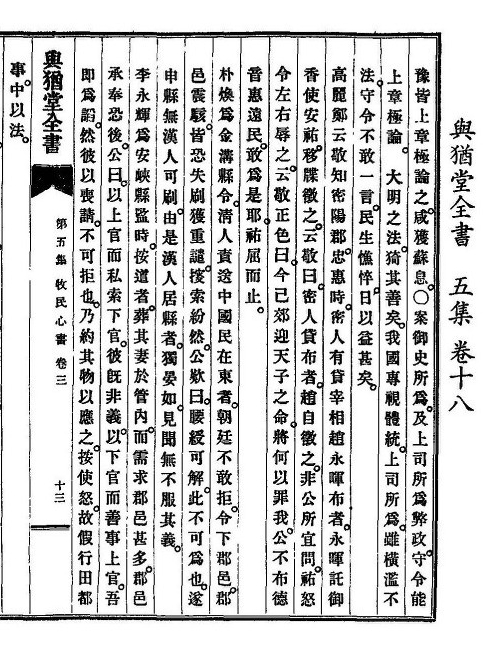 與猶堂全書　五集　卷十八
豫皆上章極論之。咸獲蘇息。○案御史所爲。及上司所爲弊政。守令能
上章極論。大明之法。猗其善矣。我國專視體統。上司所爲。雖橫濫不
法。守令不敢一言。民生憔悴。日以益甚矣。
高麗鄭云敬知密陽郡。忠惠時。密人有貸宰相趙永暉布者。永暉託御
香使安祐。移牒徵之。云敬曰。密人貸布者。趙自徵之。非公所宜問。祐怒
令左右辱之。云敬正色曰。今已郊迎天子之命。將何以罪我。公不布德
音惠遠民。敢爲是耶。祐屈而止。
朴煥爲金溝縣令。淸人責送中國民在東者。朝廷不敢拒。令下郡邑。郡
邑震駭。皆恐失刷獲重譴。搜索紛然。公歎曰。腰綬可解。此不可爲也。遂
申縣無漢人可刷。由是漢人居縣者。獨晏如。見聞無不服其義。
李永輝爲安峽縣監時。按道者。葬其妻於管內。而需求郡邑甚多。郡邑
承奉恐後。公曰。以上官而私索下官。彼旣非義。以下官而善事上官。吾
卽爲諂。然彼以喪請。不可拒也。乃約其物以應之。按使怒。故假行田都
與猶堂全書
第五集　牧民心書　卷三
十三
事中以法。